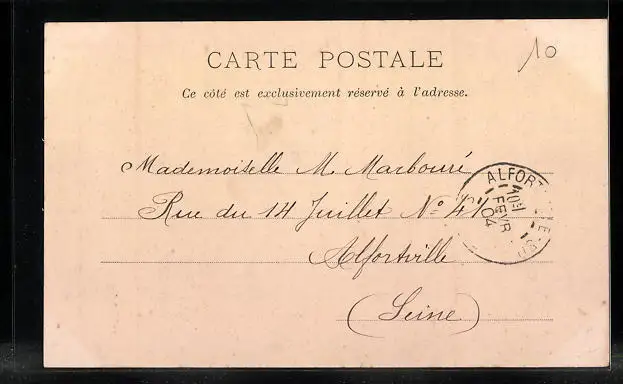 10
CARTE POSTALE
Ce côté est exclusivement réservé à l'adresse.
Mademoiselle M Marbouré
Rue du 14 Juillet N° 41
Alfortville
(Seine)
ALFORT
FEVR
04